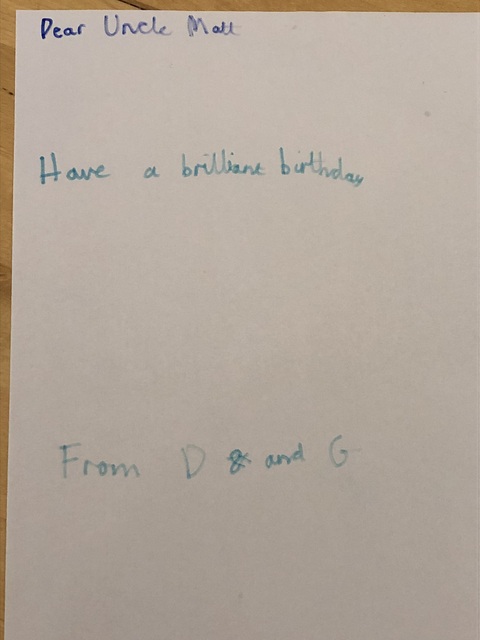 Dear Uncle Matt
Have a brilliant birthday
From D & and G